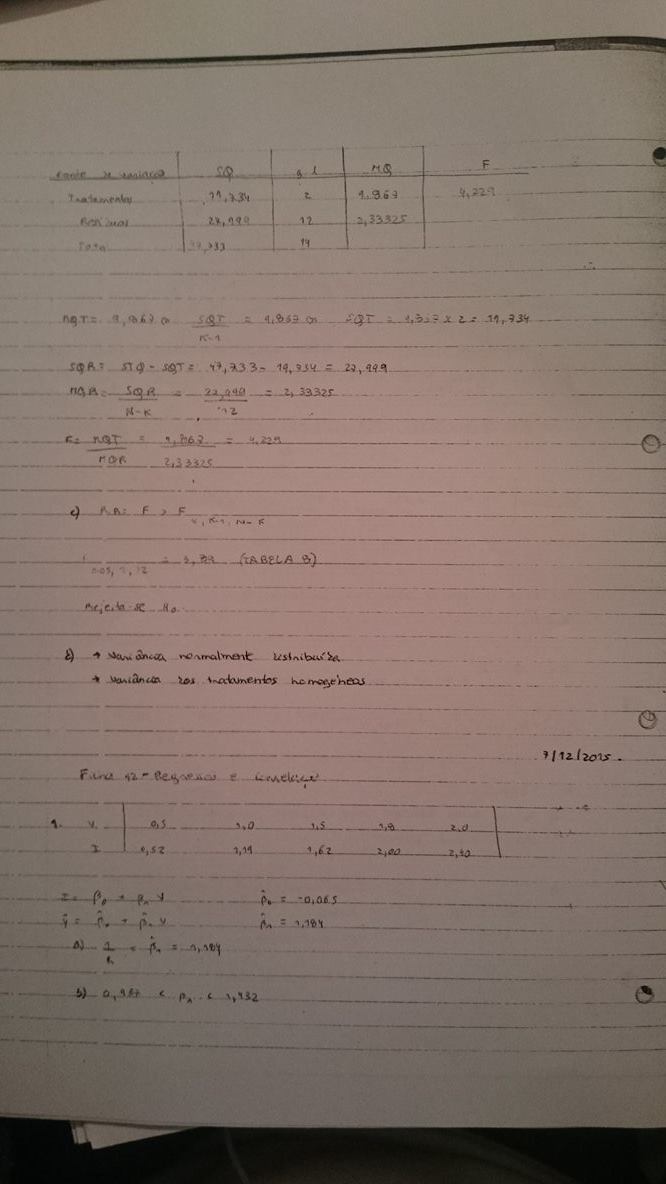 Fonte de variação SQ g.l MQ F
Tratamentos 19,734 2 9.867 4,229
Residual 27,999 12 2,33325
Total 47,733 14
MQT = 9,867 (=) SQT/K-1 = 9.867 (=) SQT = 9,867 x 2 = 19,734
SQR = STQ - SQT = 47,733 - 19,734 = 27,999
MQR = SQR/N-K = 27,999/12 = 2,33325
F = MQT/MQR = 9,867/2,33325 = 4,229
c) RR: F > F α, K-1, N-K
0.05, 2, 12 = 3,89 (TABELA 8)
Rejeita-se H₀
d) → variância normalmente distribuída
→ variância dos tratamentos homogéneas
7/12/2015.
Ficha 12 - Regressão e Correlação
1. V 0,5 1,0 1,5 1,8 2.0
I 0,52 1,19 1,62 2,00 2,40
I = β₀ + β₁ V β̂₀ = -0,065
ŷ = β̂₀ + β̂₁ V β̂₁ = 1,184
a) 1/R = β̂₁ = 1,184
b) < β₁ < 1,432